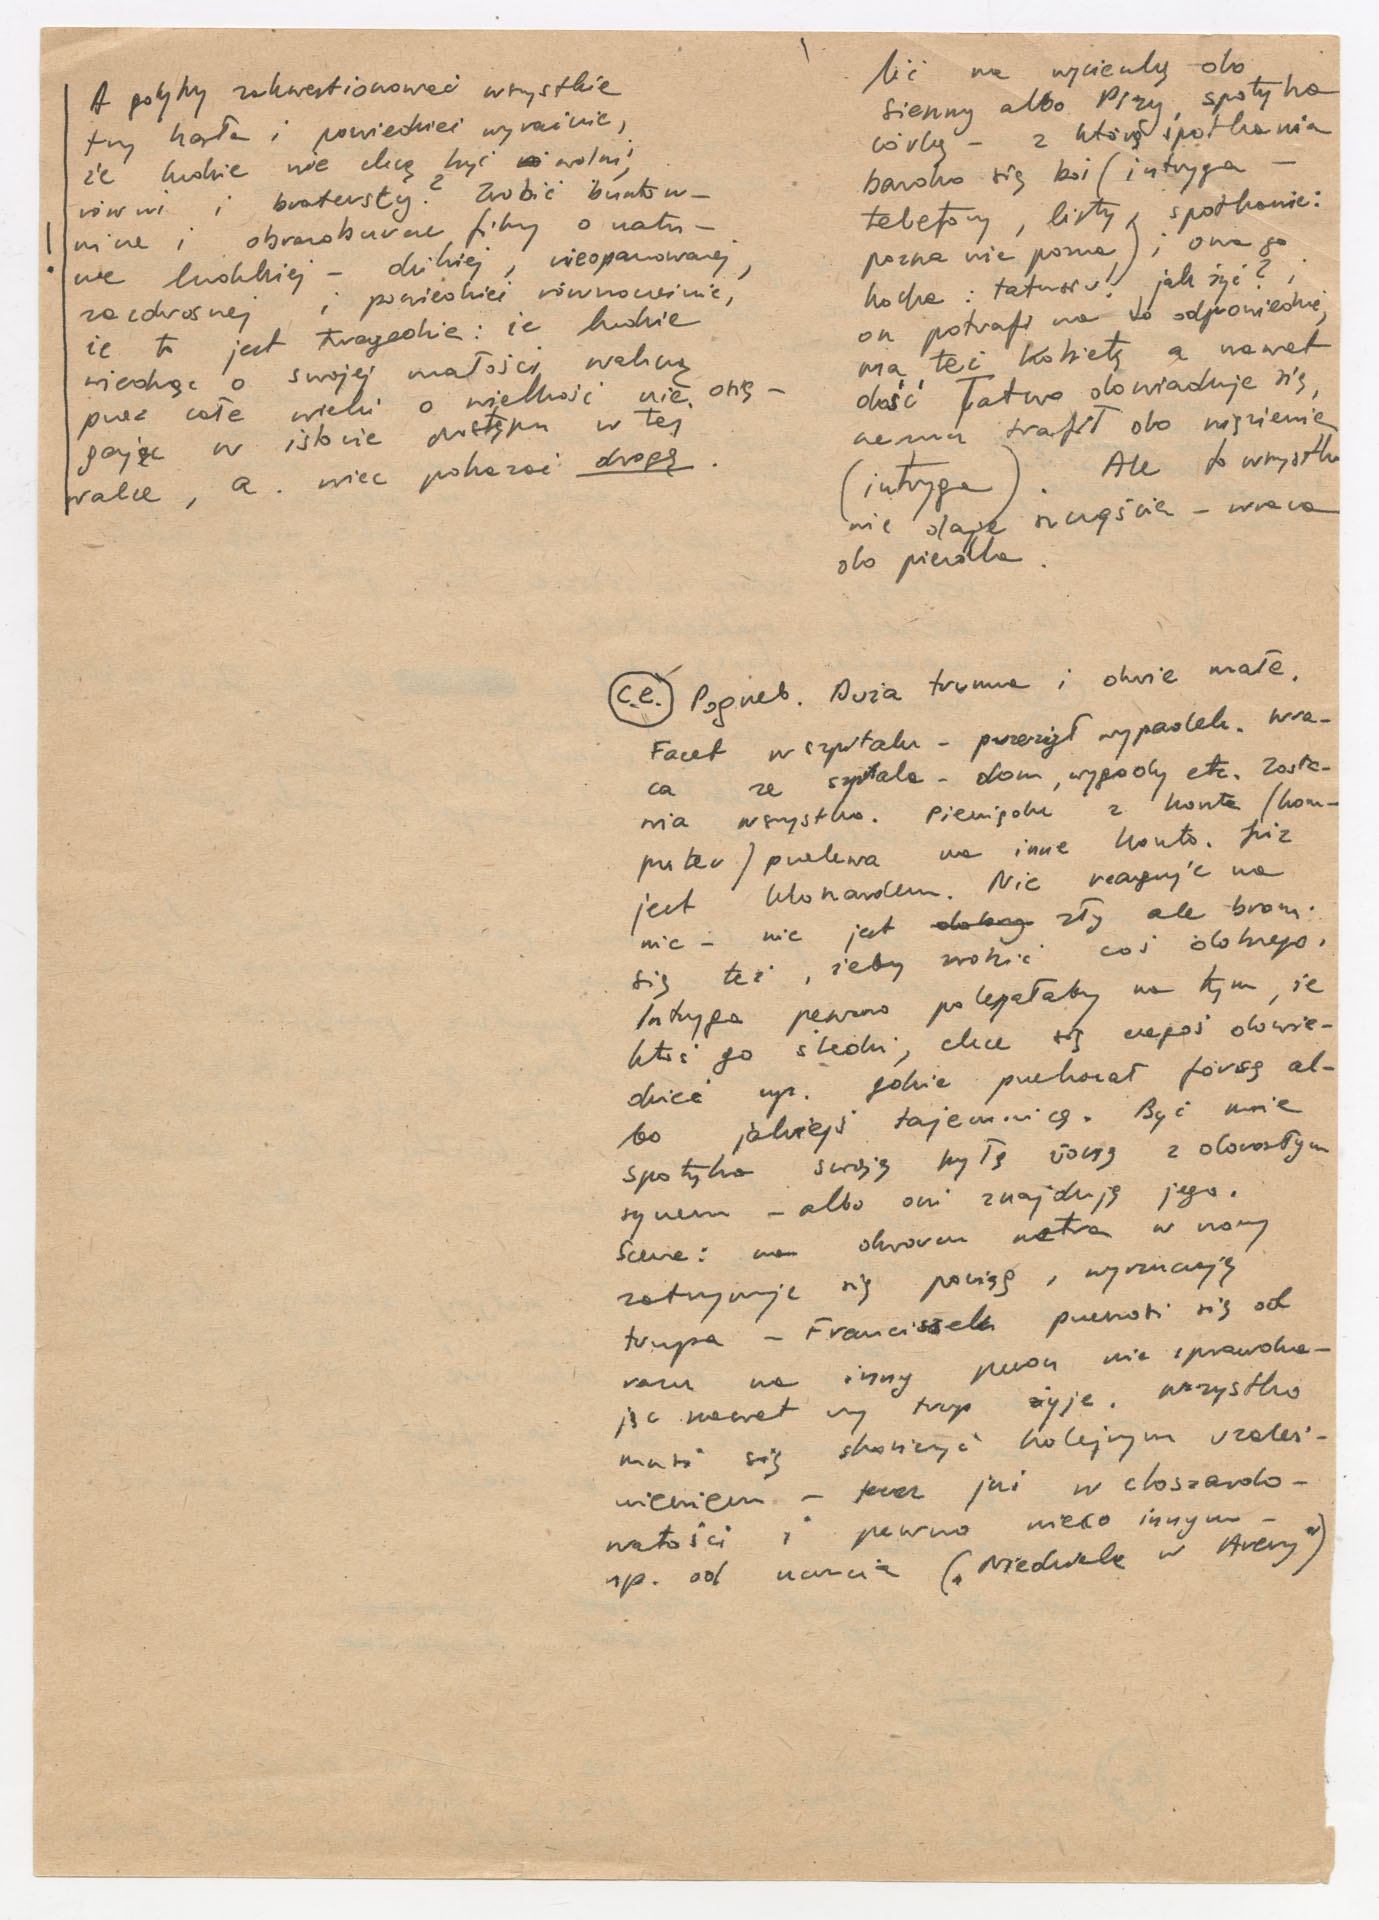 A gdyby zakwestionować wszystkie
trzy hasła i powiedzieć wyraźnie,
że ludzie nie chcą być wolni,
równi i braterscy? Zrobić buntow-
nicze i obrazoburcze filmy o natu-
rze ludzkiej – dzikiej, nieopanowanej,
zazdrosnej i powiedzieć równocześnie,
że to jest tragedia: że ludzie
wiedząc o swojej małości walczą
przez całe wieki o wielkość nie osią-
gając w istocie postępu w tej
walce, a więc pokazać drogę.
!
lić na wycieczkę do
Sienny albo Pizy, spotyka
córkę – z którą spotkania
bardzo się boi (intryga –
telefony, listy, spotkanie:
pozna nie pozna) i ona go
kocha: tatusiu! jak żyć? i
on potrafi na to odpowiedzieć,
ma też kobietę a nawet
dość łatwo dowiaduje się,
czemu trafił do więzienia
(intryga). Ale to wszystko
nie daje szczęścia – wraca
do piekła.
C.E. Pogrzeb. Duża trumna i dwie małe.
Facet w szpitalu – przeżył wypadek. Wra-
ca ze szpitala – dom, wygody etc. Zosta-
wia wszystko. Pieniądze z konta (kom-
puter) przelewa na inne konto. Już
jest kloszardem. Nie reaguje na
nic – nie jest zły ale broni
się też, żeby zrobić coś dobrego.
Intryga pewno polegałaby na tym, że
ktoś go śledzi, chce się czegoś dowie-
dzieć np. gdzie przekazał forsę al-
bo jakiejś tajemnicy. Być może
spotyka swoją byłą żonę z dorosłym
synem – albo oni znajdują jego.
Scena: na dworcu metra w nocy
zatrzymuje się pociąg, wyrzucają
trupa – Franciszek przenosi się od
razu na inny peron nie sprawdza-
jąc nawet czy trup żyje. Wszystko
musi się skończyć kolejnym uzależ-
nieniem – teraz już w closzardo-
watości i pewno nieco innym –
np. od uczucia („Niedziele w Avray")